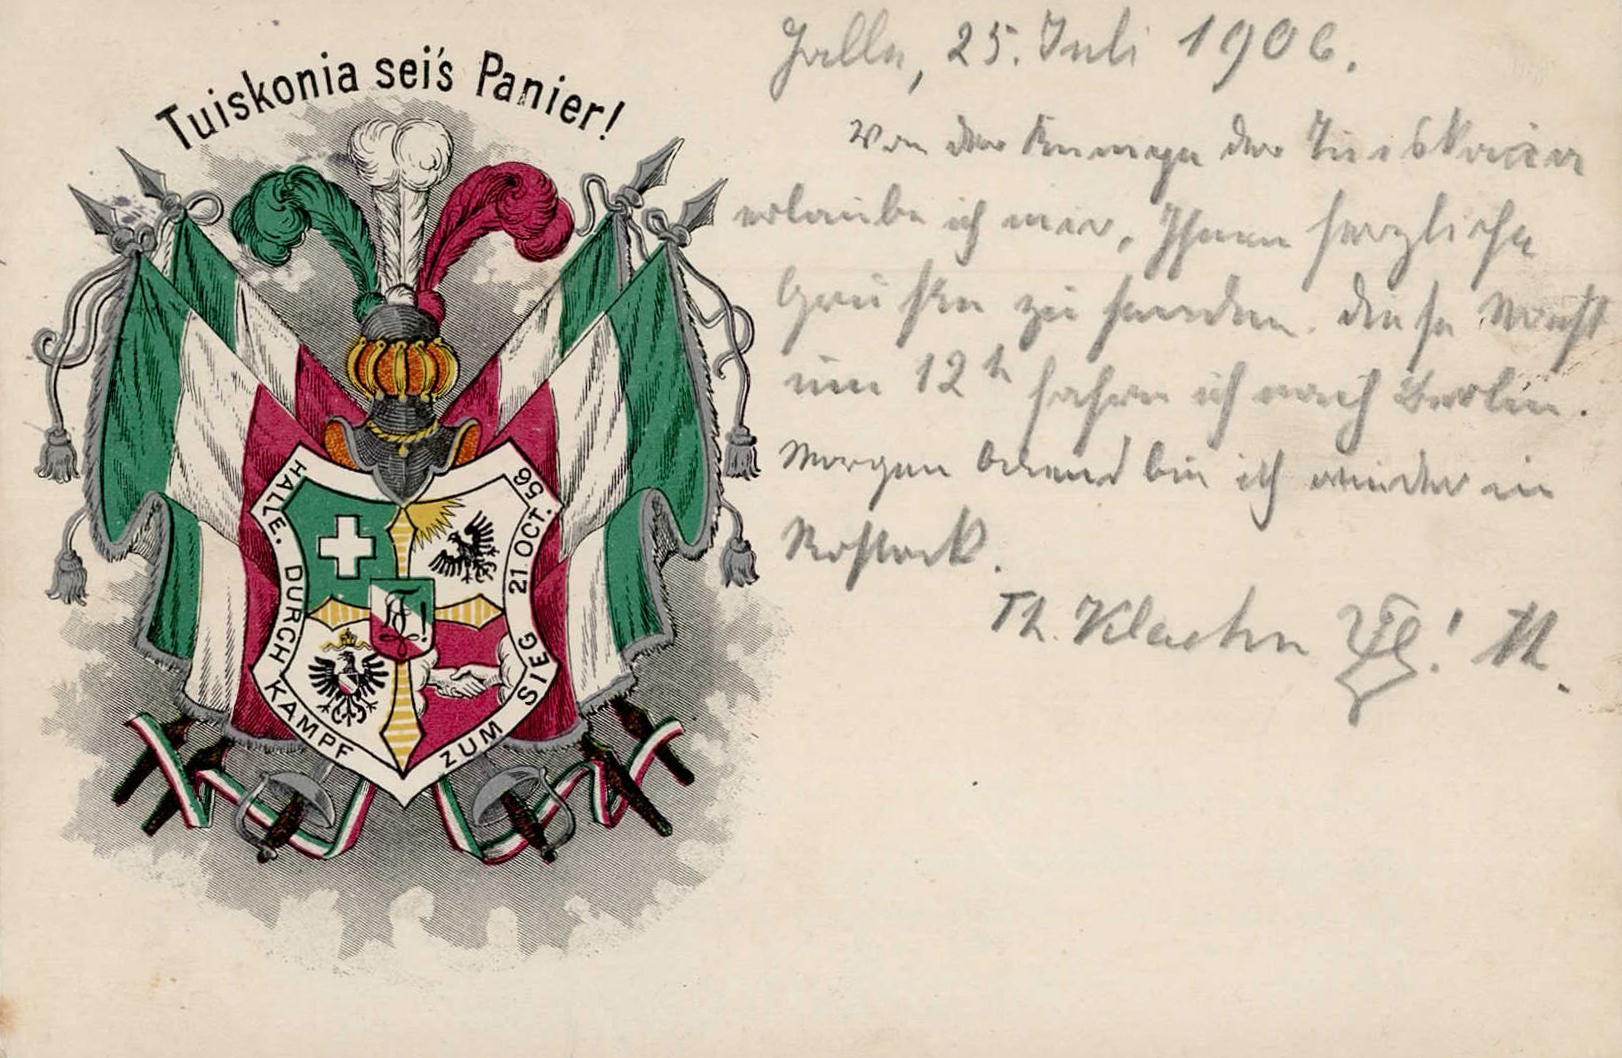 Tuiskonia sei's Panier!
HALLE. DURCH KAMPF ZUM SIEG 21. OCT. 56
Halle, 25. Juli 1906.
Von der Kneipe der Tuiskonia
erlaube ich mir, Ihnen herzliche
Grüße zu senden. Diese Nacht
um 12h fahre ich nach Berlin.
Morgen Abend bin ich wieder in
Rostock.
Th. Klaehn